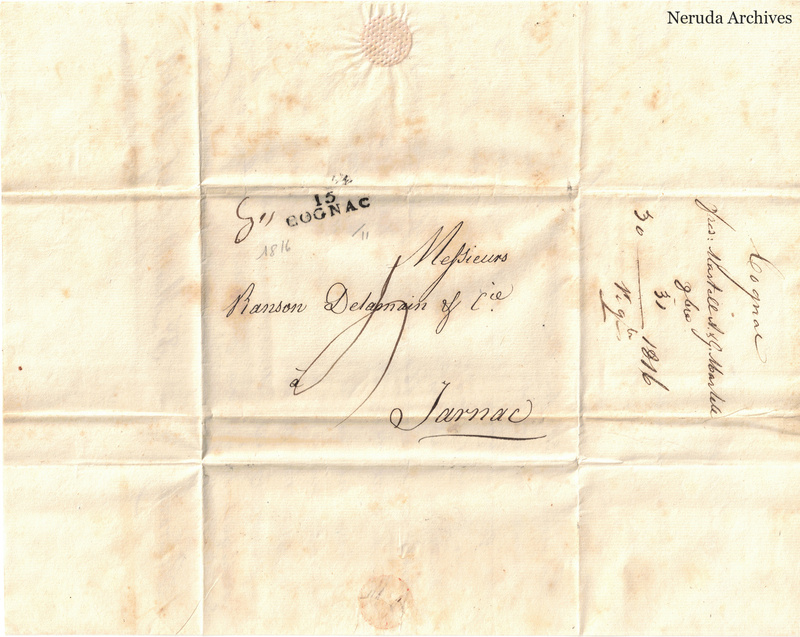 Neruda Archives
15
COGNAC
1816
Messieurs
Ranson Delamain & Cie
à
Jarnac
Cognac
Martell
30
31
1816